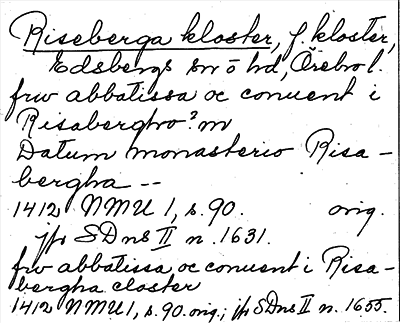 Riseberga kloster, f. kloster,
Edsbergs sn o hd, Örebro l.
frw abbatissa oc conuent i
Risabergho? m
Datum monasterio Risa-
bergha --
1412 NMU 1, s. 90. orig.
jfr SDns II n. 1631.
frw abbatissa oc conuent i Risa-
bergha closter
1412 NMU 1, s. 90. orig.; jfr SDns II n. 1655.